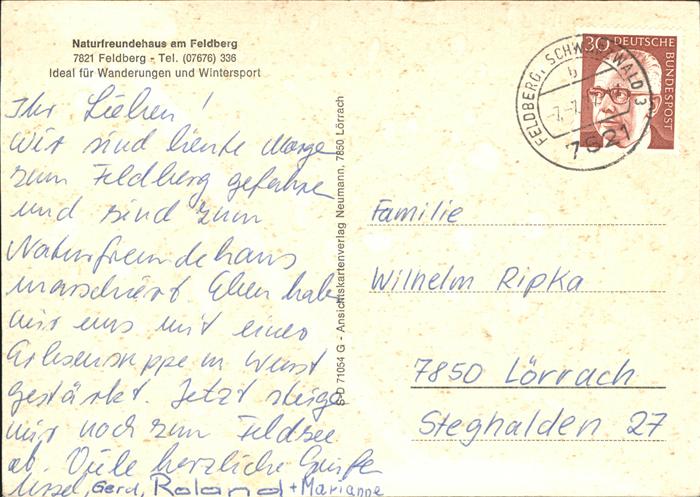 Naturfreundehaus am Feldberg
7821 Feldberg - Tel. (07676) 336
Ideal für Wanderungen und Wintersport
Ihr Lieben!
Wir sind heute Morge
zum Feldberg gefahre
und sind zum
Naturfreundehaus
marschiert. Eben habe
wir uns mit einer
Erbsensuppe m Wurst
gestärkt. Jetzt steige
wir noch zum Feldsee
ab. Viele herzliche Grüße
Gerd, Roland + Marianne
S-D 71054 G - Ansichtskartenverlag Neumann, 7850 Lörrach
30 DEUTSCHE BUNDESPOST
FELDBERG, SCHWARZWALD 3
b
7821
Familie
Wilhelm Ripka
7850 Lörrach
Steghalden 27